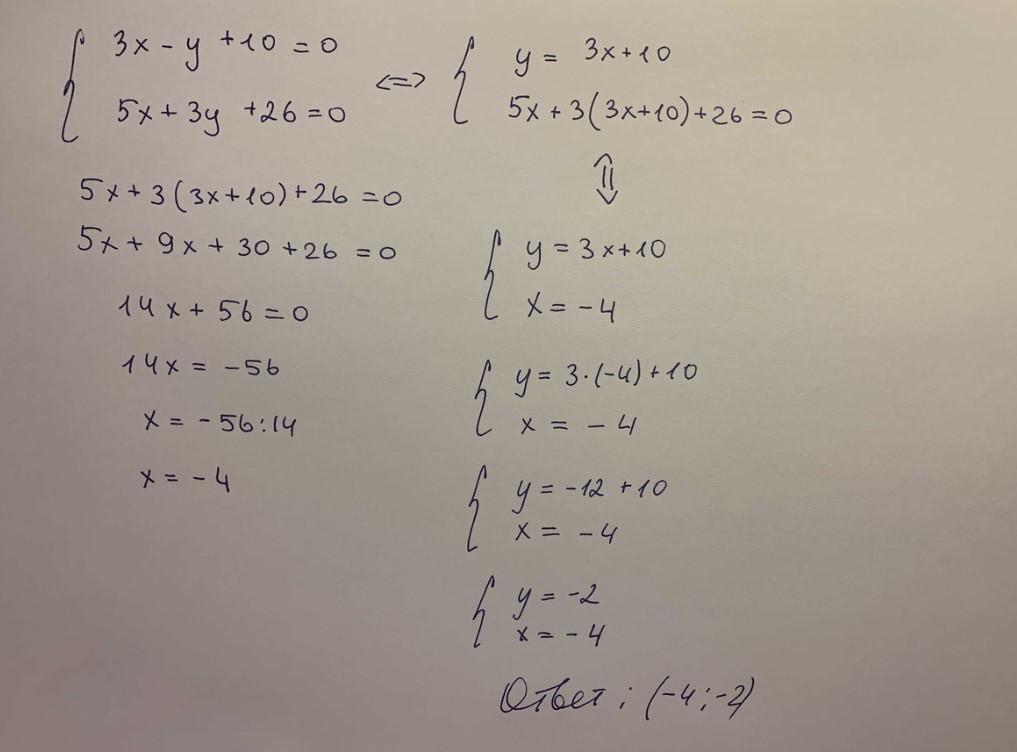 { 3x - y + 10 = 0
5x + 3y + 26 = 0
<=>
{ y = 3x + 10
5x + 3(3x+10) + 26 = 0
⇕
5x + 3(3x+10) + 26 = 0
5x + 9x + 30 + 26 = 0
14x + 56 = 0
14x = -56
x = -56:14
x = -4
{ y = 3x + 10
x = -4
{ y = 3·(-4) + 10
x = -4
{ y = -12 + 10
x = -4
{ y = -2
x = -4
Ответ: (-4; -2)